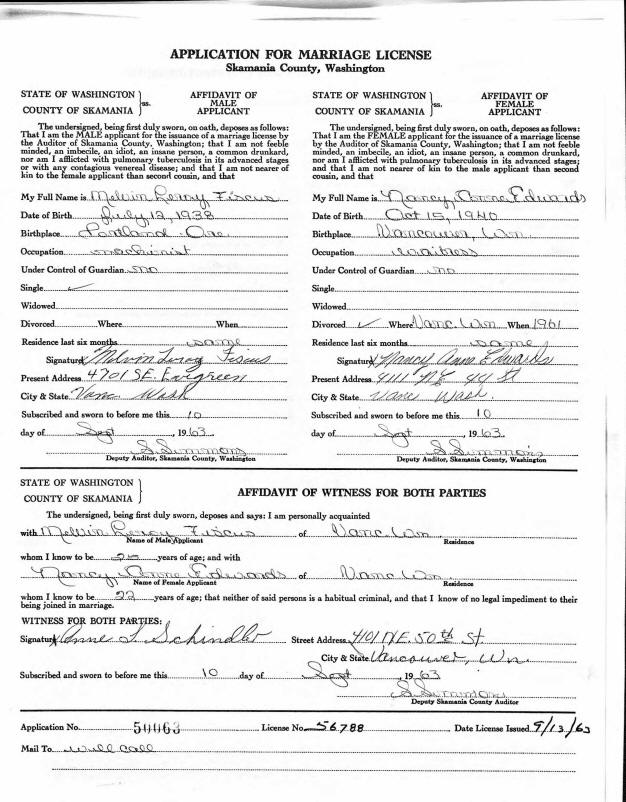 APPLICATION FOR MARRIAGE LICENSE
Skamania County, Washington
STATE OF WASHINGTON
COUNTY OF SKAMANIA
ss.
AFFIDAVIT OF
MALE
APPLICANT
The undersigned, being first duly sworn, on oath, deposes as follows:
That I am the MALE applicant for the issuance of a marriage license by
the Auditor of Skamania County, Washington; that I am not feeble
minded, an imbecile, an idiot, an insane person, a common drunkard,
nor am I afflicted with pulmonary tuberculosis in its advanced stages
or with any contagious venereal disease; and that I am not nearer of
kin to the female applicant than second cousin, and that
My Full Name is Melvin Leroy Fiscus
Date of Birth July 12, 1938
Birthplace Portland Ore
Occupation machinist
Under Control of Guardian no
Single ✓
Widowed
Divorced Where When
Residence last six months same
Signature X Melvin Leroy Fiscus
Present Address 4701 SE. Evrgreen
City & State Vanc Wash
Subscribed and sworn to before me this 10
day of Sept, 1963
S Simmons
Deputy Auditor, Skamania County, Washington
STATE OF WASHINGTON
COUNTY OF SKAMANIA
ss.
AFFIDAVIT OF
FEMALE
APPLICANT
The undersigned, being first duly sworn, on oath, deposes as follows:
That I am the FEMALE applicant for the issuance of a marriage license
by the Auditor of Skamania County, Washington; that I am not feeble
minded, an imbecile, an idiot, an insane person, a common drunkard,
nor am I afflicted with pulmonary tuberculosis in its advanced stages;
and that I am not nearer of kin to the male applicant than second
cousin, and that
My Full Name is Nancy Anne Edwards
Date of Birth Oct 15, 1940
Birthplace Vancouver, Wn.
Occupation waitress
Under Control of Guardian no
Single
Widowed
Divorced ✓ Where Vanc. Wn When 1961
Residence last six months same
Signature X Nancy Anne Edwards
Present Address 4111 NE 44 St
City & State Vanc Wash.
Subscribed and sworn to before me this 10
day of Sept, 1963
S Simmons
Deputy Auditor, Skamania County, Washington
STATE OF WASHINGTON
COUNTY OF SKAMANIA
AFFIDAVIT OF WITNESS FOR BOTH PARTIES
The undersigned, being first duly sworn, deposes and says: I am personally acquainted
with Melvin Leroy Fiscus of Vanc. Wn.
Name of Male Applicant Residence
whom I know to be 25 years of age; and with
Nancy Anne Edwards of Vanc. Wn.
Name of Female Applicant Residence
whom I know to be 22 years of age; that neither of said persons is a habitual criminal, and that I know of no legal impediment to their
being joined in marriage.
WITNESS FOR BOTH PARTIES:
Signature X Anne L Schindler Street Address 4101 N.E. 50th St
City & State Vancouver, Wn.
Subscribed and sworn to before me this 10 day of Sept, 1963
S Simmons
Deputy Skamania County Auditor
Application No. 50063 License No. 56788 Date License Issued 9/13/63
Mail To will call